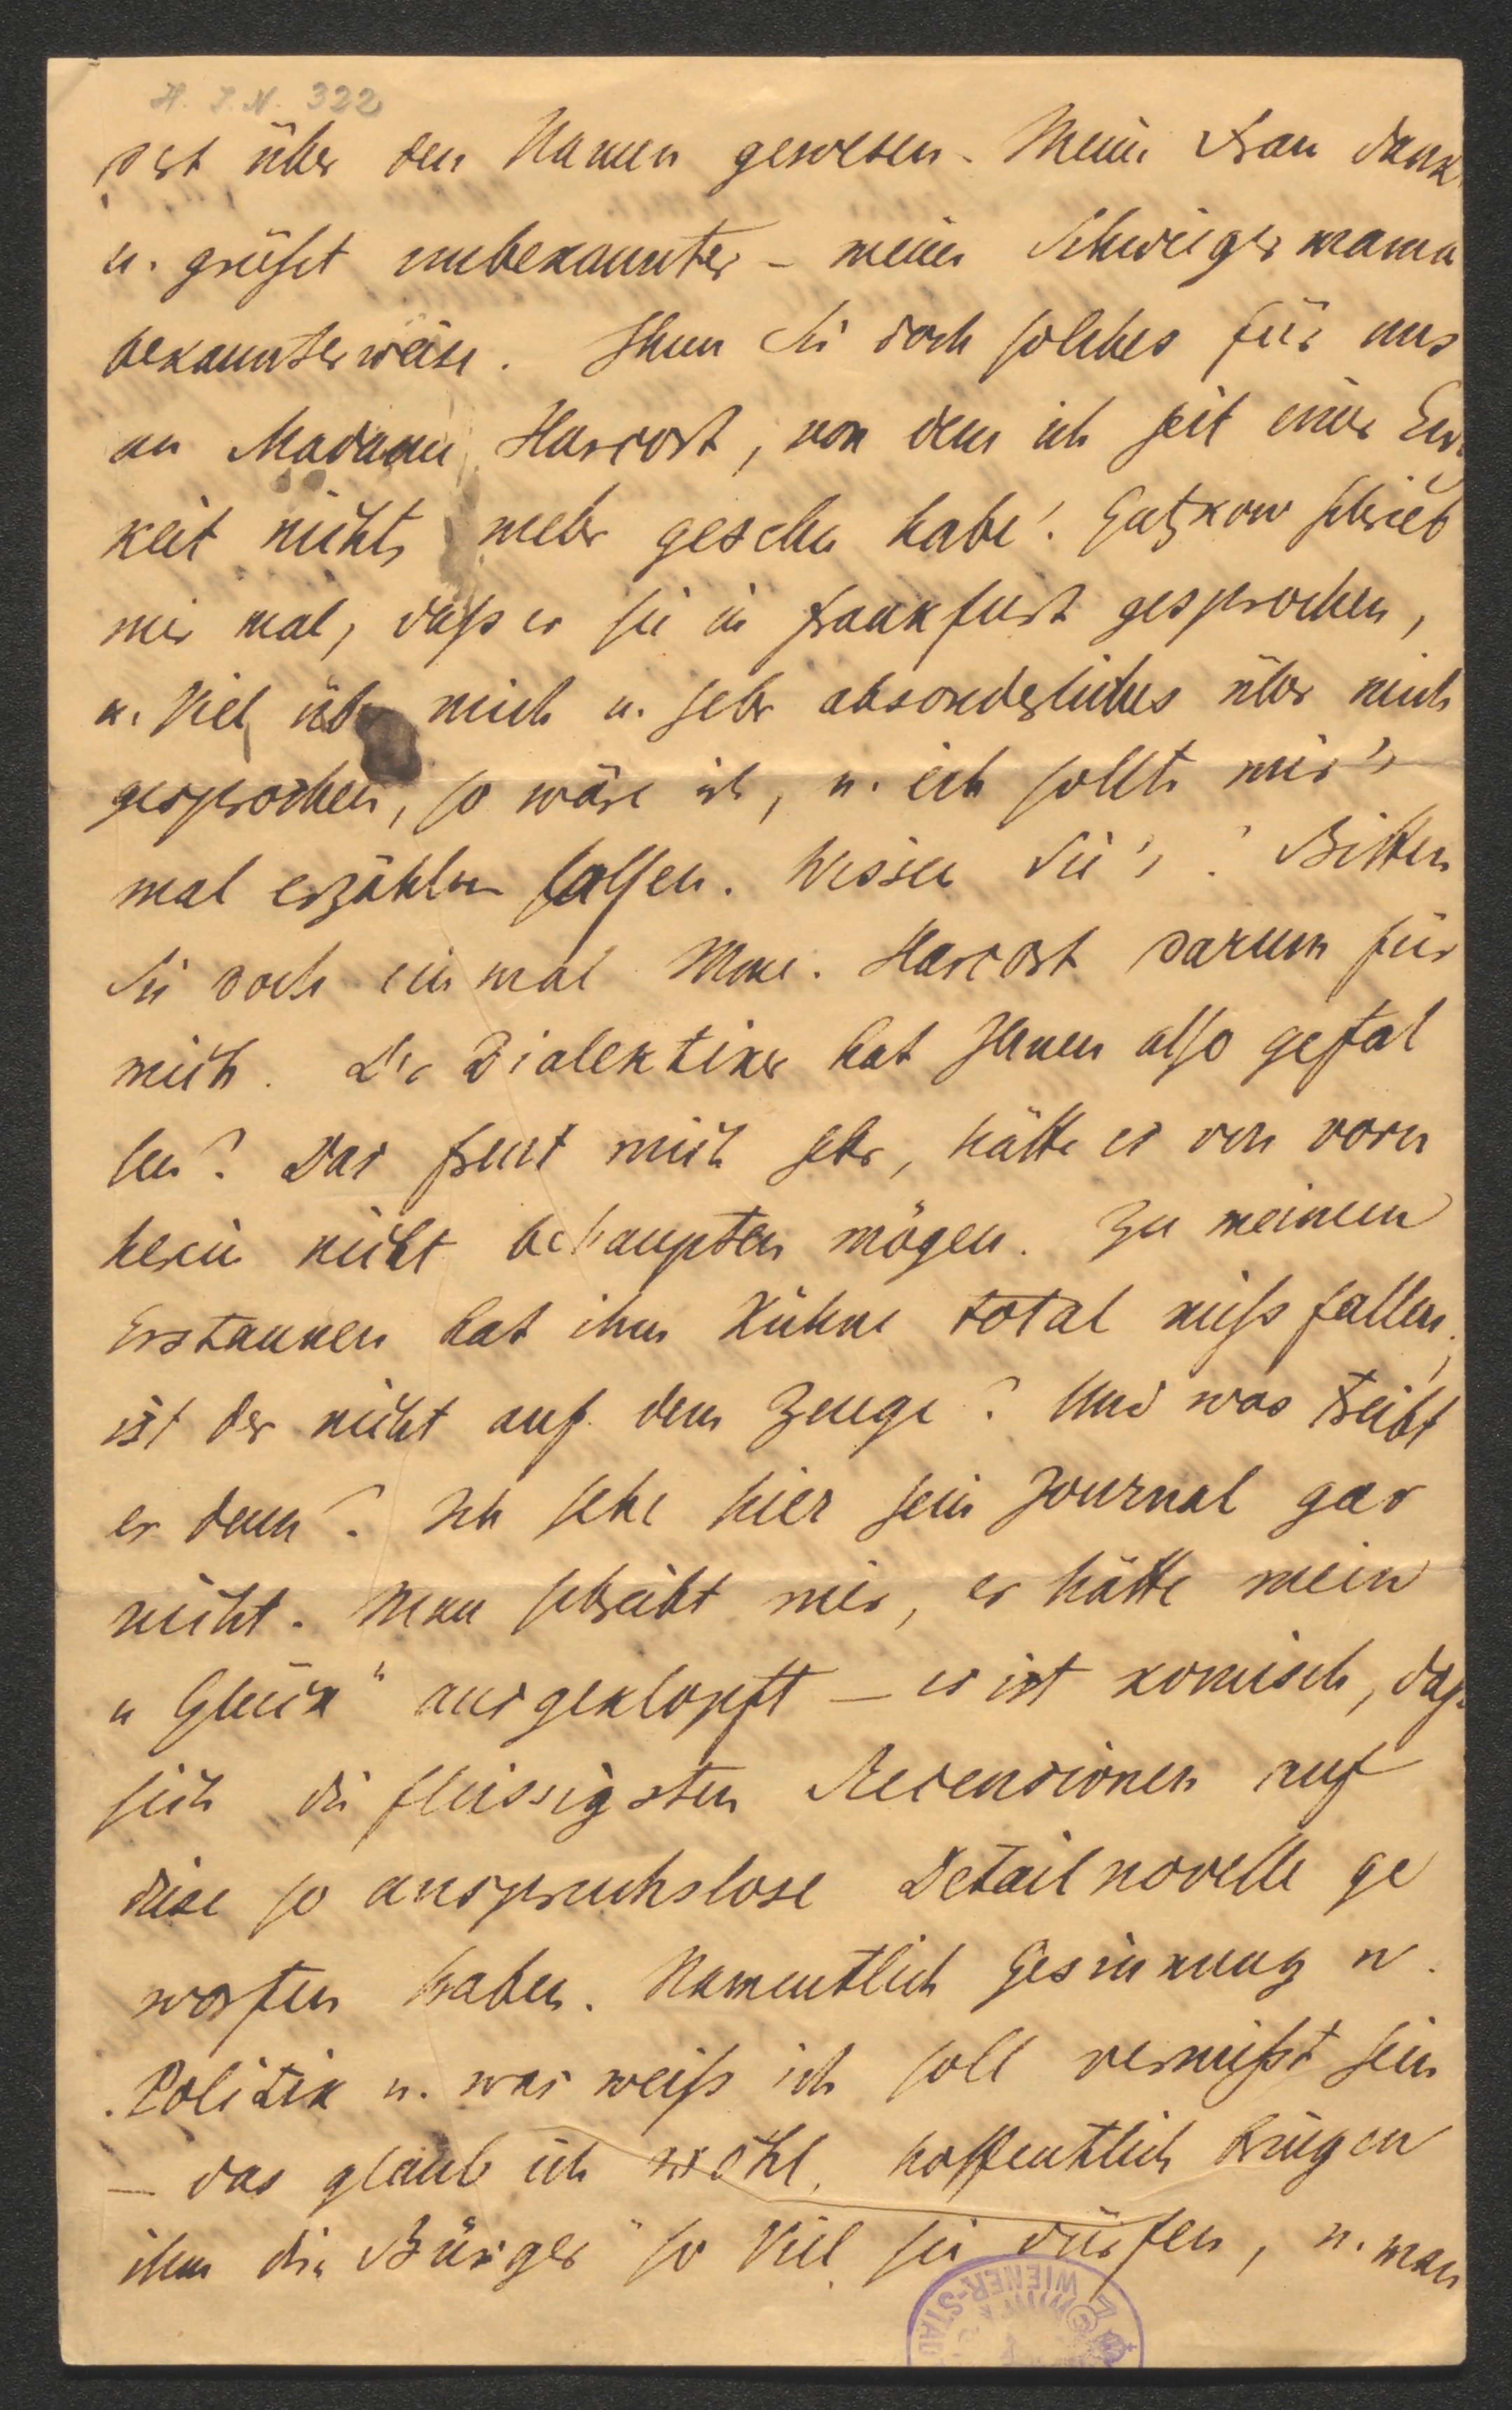 H. I. N. 322
ist über den Namen gewesen. Meine Frau dank
u. grüßt unbekannter – meine Schwiegermama
bekannterweise. Thun Sie doch solches für uns
an Madame Harcort, von der ich seit einer Ew
keit nichts mehr gesehen habe! Gutzkow schrieb
mir mal, daß er sie in Frankfurt gesprochen,
u. viel über mich u. sehr absonderliches über mich
gesprochen, so wäre ich, u. ich sollte mir's
mal erzählen lassen. Wissen Sie's? Bitten
Sie doch einmal Mme. Harcort darum für
mich. Dr Dialektiker hat Ihnen also gefal
len? Das freut mich sehr, hätte es von vorn
herein nicht behaupten mögen. Zu meinem
Erstaunen hat ihm Kühne total mißfallen,
ist der nicht auf dem Zeuge? Und was treibt
er denn? Ich sehe hier sein Journal gar
nicht. Man schreibt mir, er hätte mein
„Glück" ausgeklopft – es ist komisch, daß
sich die fleissigsten Recensionen auf
diese so anspruchslose Detailnovelle ge
worfen haben. Namentlich Gesinnung u.
Politik u. was weiß ich soll vermißt sein
– das glaub ich wohl, hoffentlich bringen
ihm die „Bürger" so viel sie dürfen, u. man
WIENER-STAD